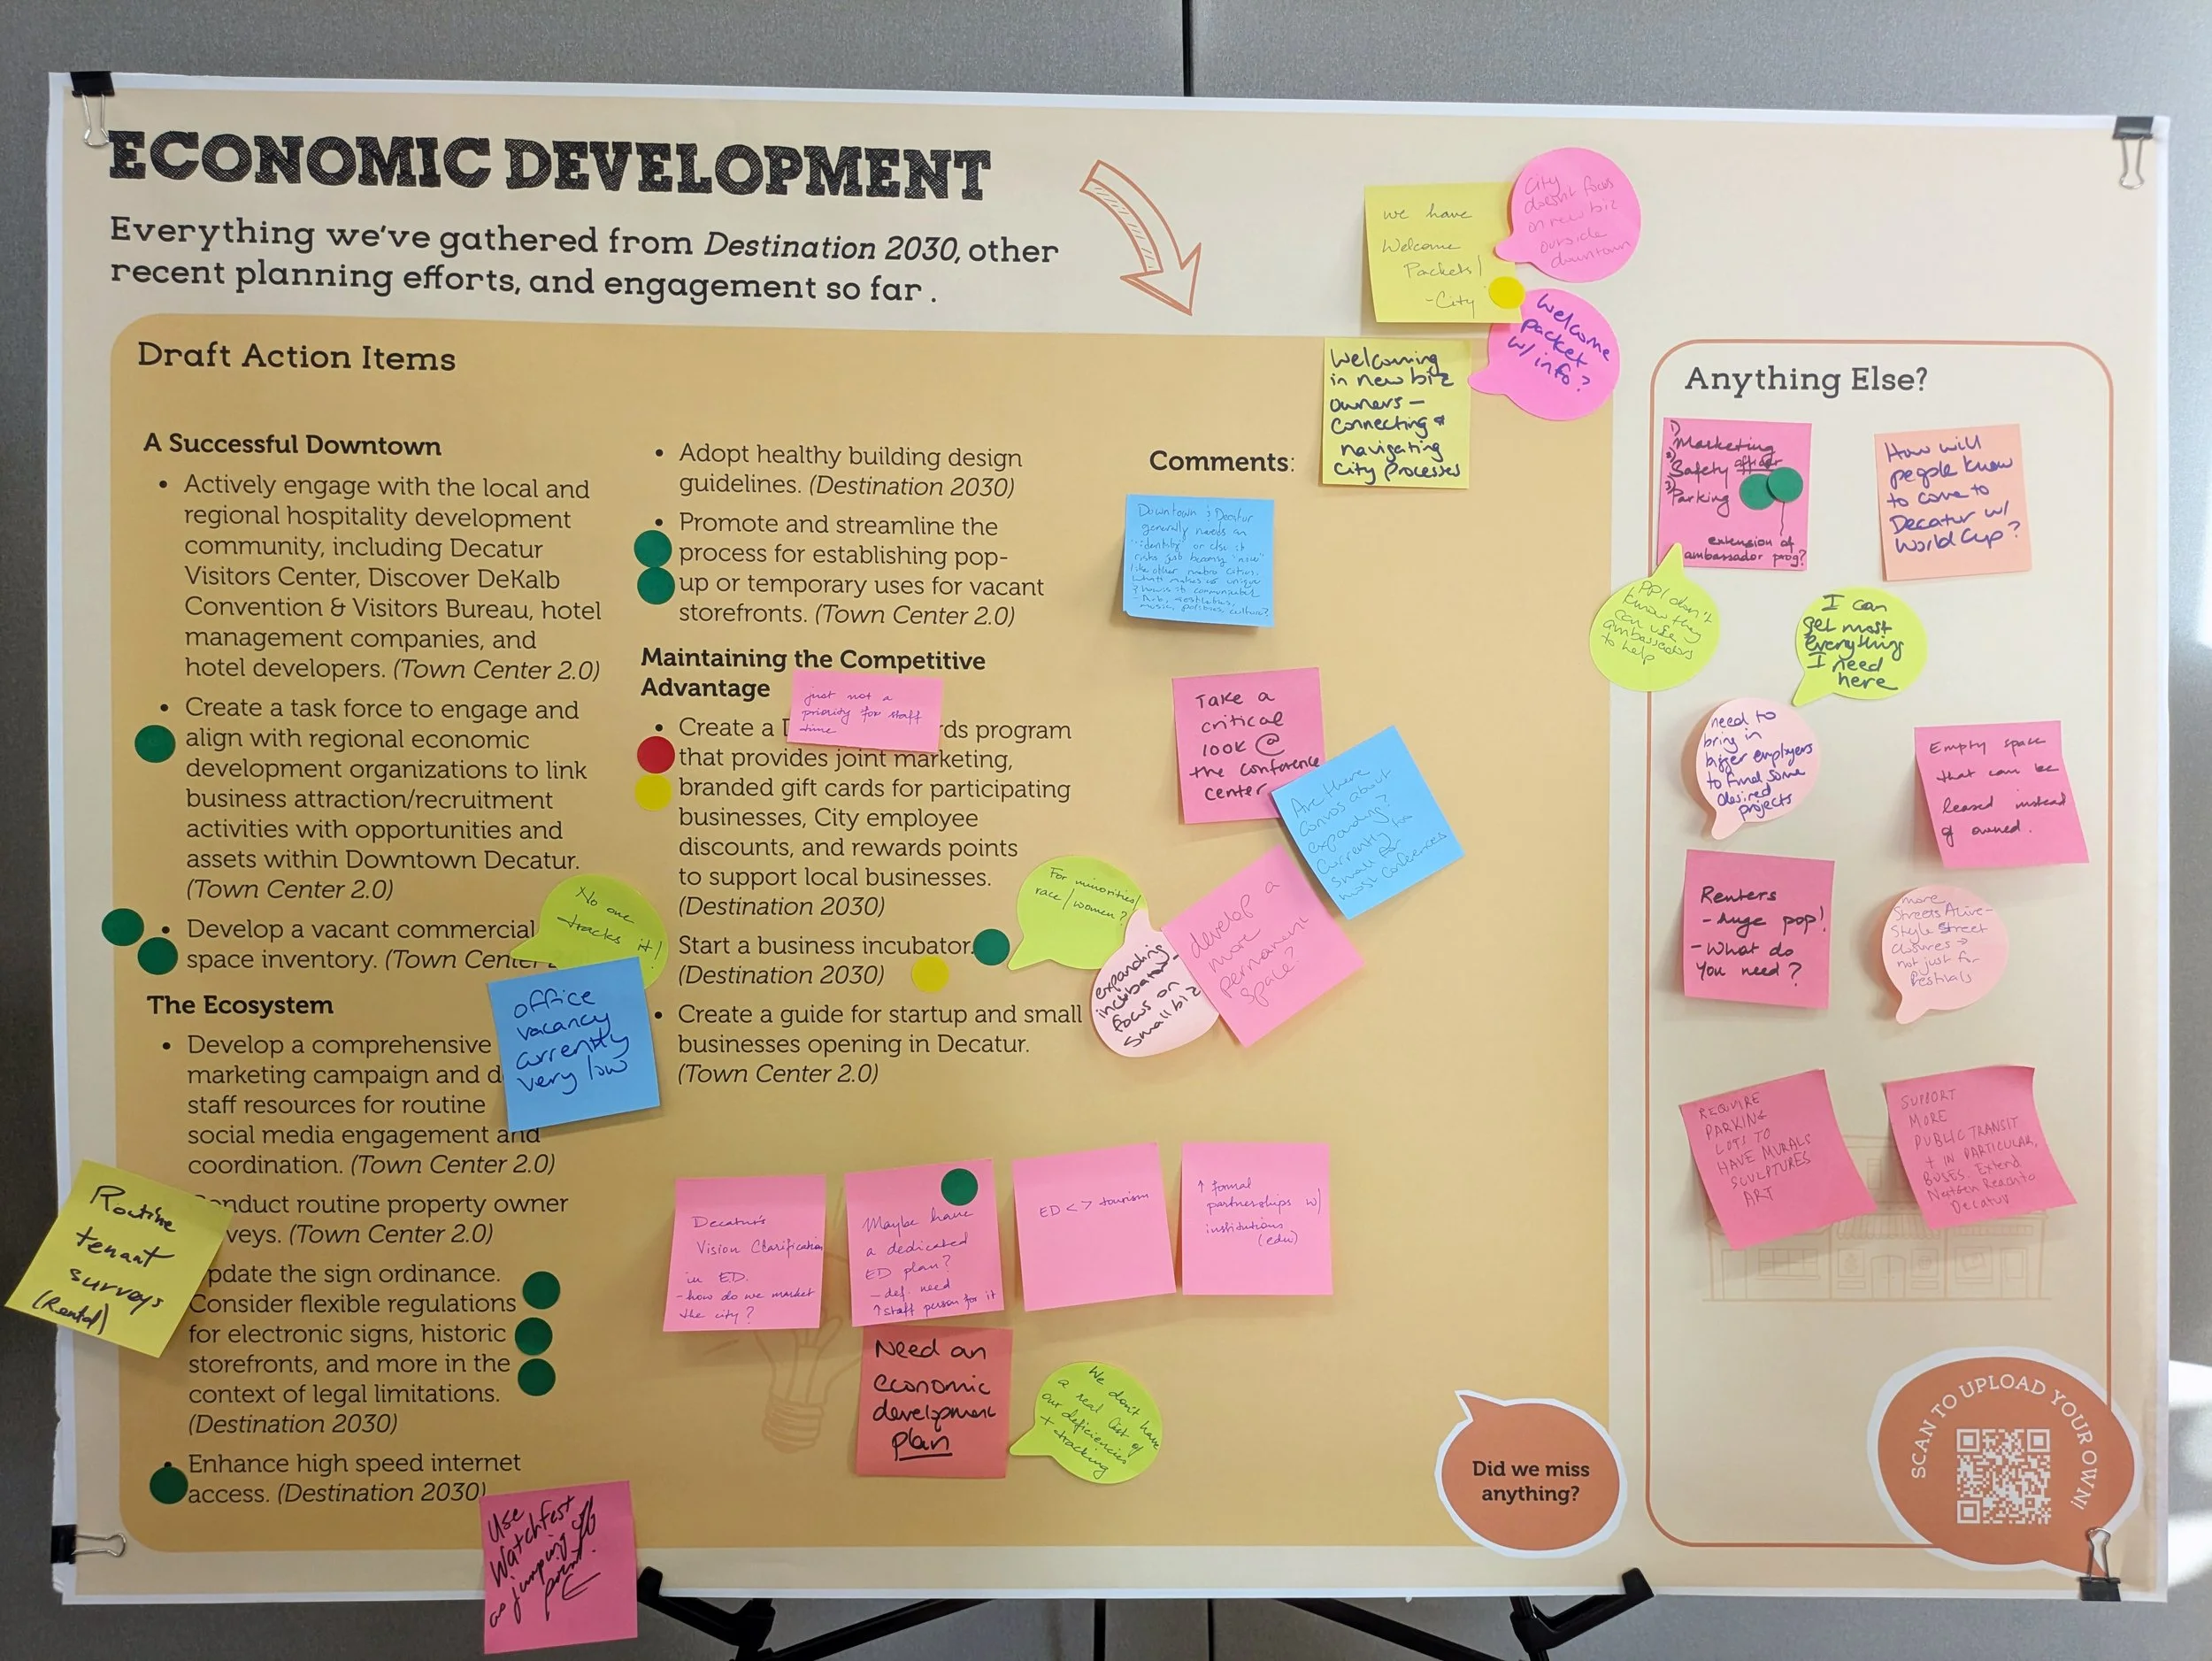 ECONOMIC DEVELOPMENT
Everything we've gathered from Destination 2030, other
recent planning efforts, and engagement so far .
Draft Action Items
A Successful Downtown
• Actively engage with the local and
regional hospitality development
community, including Decatur
Visitors Center, Discover DeKalb
Convention & Visitors Bureau, hotel
management companies, and
hotel developers. (Town Center 2.0)
• Create a task force to engage and
align with regional economic
development organizations to link
business attraction/recruitment
activities with opportunities and
assets within Downtown Decatur.
(Town Center 2.0)
• Develop a vacant commercial
space inventory. (Town Center
No one
tracks it!
office
vacancy
currently
very low
The Ecosystem
• Develop a comprehensive
marketing campaign and d
staff resources for routine
social media engagement and
coordination. (Town Center 2.0)
onduct routine property owner
veys. (Town Center 2.0)
Routine
tenant
surveys
(Rental)
pdate the sign ordinance.
Consider flexible regulations
for electronic signs, historic
storefronts, and more in the
context of legal limitations.
(Destination 2030)
• Enhance high speed internet
access. (Destination 2030)
Use
Watchfest
as jumping off
point.
• Adopt healthy building design
guidelines. (Destination 2030)
• Promote and streamline the
process for establishing pop-
up or temporary uses for vacant
storefronts. (Town Center 2.0)
Maintaining the Competitive
Advantage
just not a
priority for staff
time
• Create a D rds program
that provides joint marketing,
branded gift cards for participating
businesses, City employee
discounts, and rewards points
to support local businesses.
(Destination 2030)
Start a business incubator.
(Destination 2030)
For minorities/
race/women?
expanding
incubator-
focus on
small biz
develop a
more
permanent
space?
• Create a guide for startup and small
businesses opening in Decatur.
(Town Center 2.0)
Decatur's
Vision Clarification
in ED.
- how do we market
the city?
Maybe have
a dedicated
ED plan?
- def. need
↑ staff person for it
ED <> tourism
↑ formal
partnerships w/
institutions
(edu)
Need an
economic
development
plan
We don't have
a real list of
our deficiencies
+ tracking
Comments:
we have
Welcome
Packets!
- City
City
doesn't focus
on new biz
outside
downtown
Welcome
packet
w/ info?
Welcoming
in new biz
owners —
Connecting &
navigating
City Processes
Downtown & Decatur
generally needs an
"identity" or else it
risks just becoming "now"
like other metro cities.
What makes us unique
& how is it communicated
- Arts, restaurants,
music, politics, culture?
Take a
critical
look @
the conference
center
Are there
convos about
expanding?
Currently too
small for
most conferences
Did we miss
anything?
Anything Else?
1) Marketing
2) Safety
3) Parking
extension of
ambassador prog?
How will
people know
to come to
Decatur w/
World Cup?
Ppl don't
know they
can use
ambassadors
to help
I can
get most
everything
I need
here
need to
bring in
bigger employers
to fund some
desired
projects
Empty space
that can be
leased instead
of owned.
Renters
- huge pop!
- What do
you need?
more
Streets Alive-
Style street
closures →
not just for
festivals
REQUIRE
PARKING
LOTS TO
HAVE MURALS
SCULPTURES
ART
SUPPORT
MORE
PUBLIC TRANSIT
+ IN PARTICULAR,
BUSES. Extend
NextGen Reach to
Decatur
SCAN TO UPLOAD YOUR OWN!